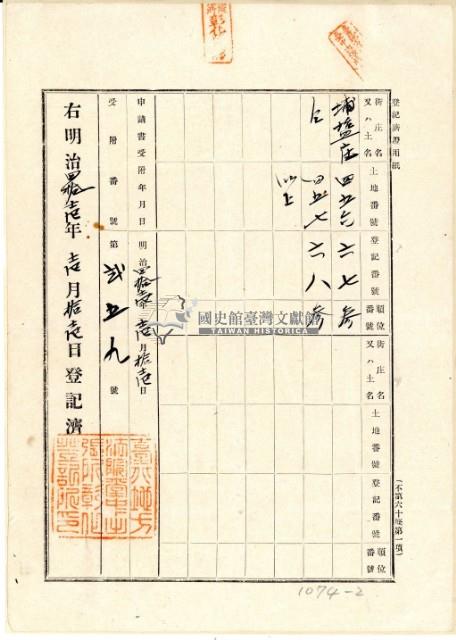 登記済證用紙
街庄名又ハ土名
土地番號
登記番號
順位番號
街庄名又ハ土名
土地番號
登記番號
順位番號
(不第六十條第一項)
埔塩庄
四五六
六七
参
仝
四五七
六八
参
以上
申請書受附年月日
明治四拾壱年壱月拾壱日
受附番號
第弐五九號
右明治四拾壱年壱月拾壱日登記濟
臺中地方
法院
彰化
登記所印
國史館臺灣文獻館
TAIWAN HISTORICA
1074-2